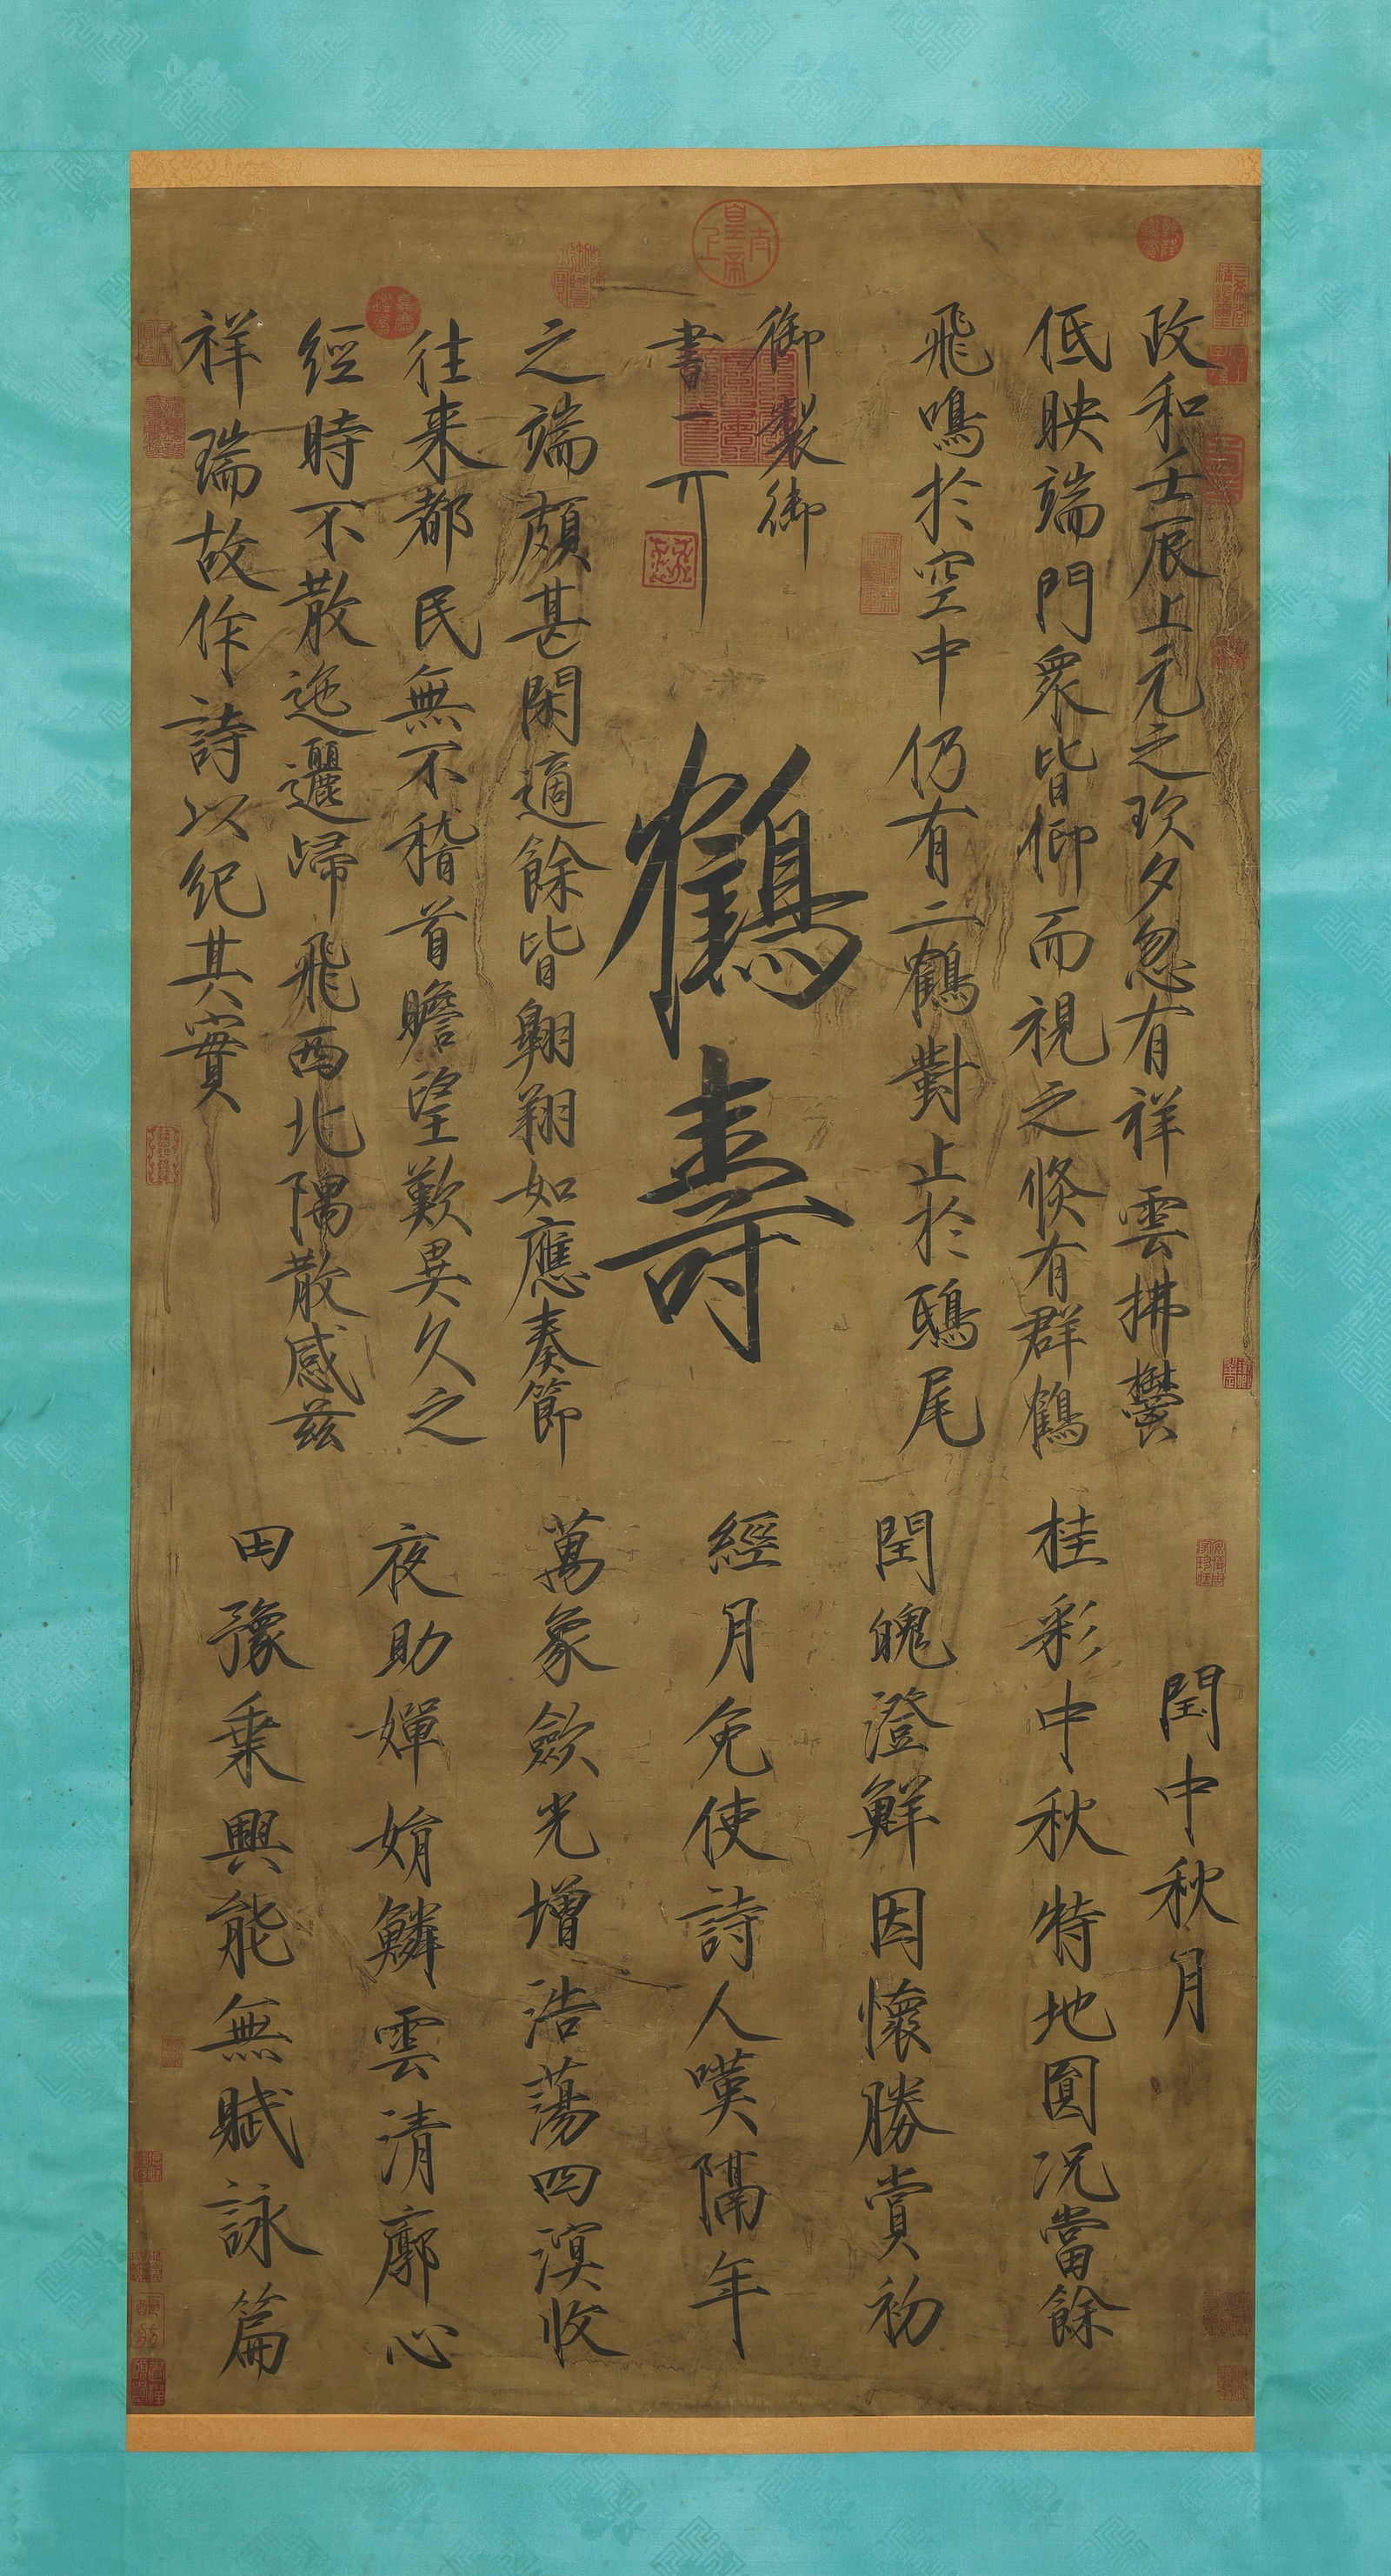 政和壬辰上元之次夕忽有祥雲拂鬱
低映端門眾皆仰而視之倏有群鶴
飛鳴於空中仍有二鶴對止於鴟尾
御製御
書一丌
鶴壽
之端頗甚閑適餘皆翱翔如應奏節
往来都民無不稽首瞻望歎異久之
經時不散迤邐歸飛西北隅散感茲
祥瑞故作詩以紀其實
閏中秋月
桂彩中秋特地圓况當餘
閏魄澄鮮因懷勝賞初
經月免使詩人嘆隔年
萬象歛光增浩蕩四溟收
夜助嬋娟鱗雲清廓心
田豫乗興能無賦詠篇